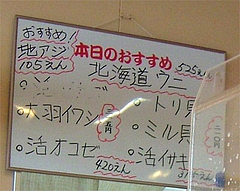 おすすめ!
地アジ
105えん
本日のおすすめ
北海道ウニ
525えん
大羽イワシ
トリ貝
ミル貝
活オコゼ
420えん
活イサキ